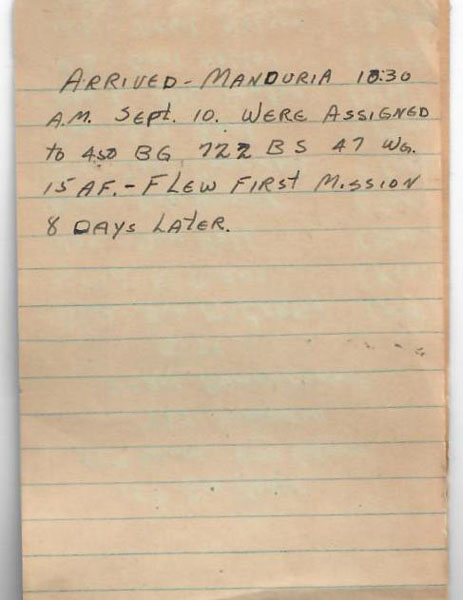 ARRIVED - MANDURIA 10:30
A.M. SEPt. 10. WERE ASSIGNED
to 450 BG 722 BS 47 WG.
15 AF. - FLEW FIRSt MISSION
8 DAYS LAtER.